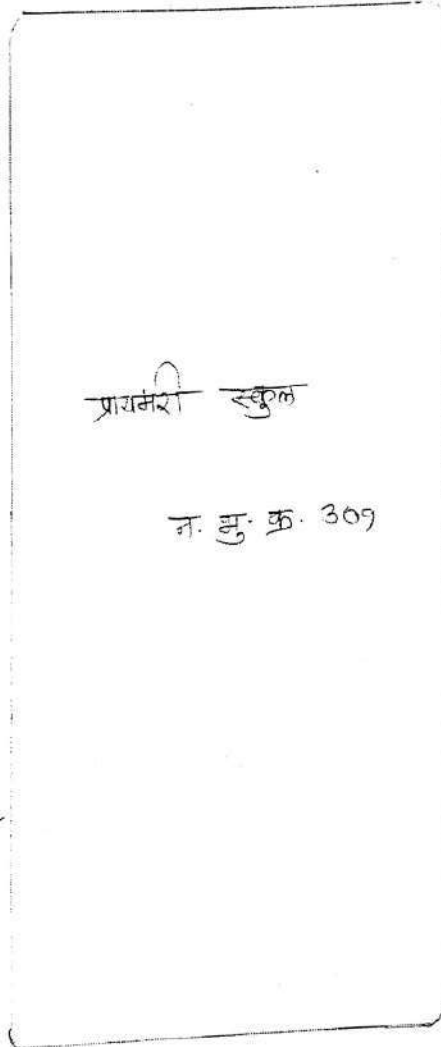 प्रायमरी स्कुल
न. भु. क्र. ३०१